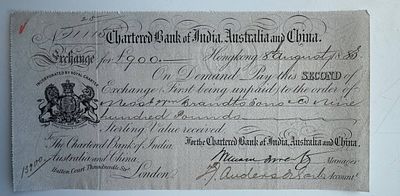 Chartered Bank of India, Australia and China.
Exchange for £900.— Hongkong 8 August 188
On Demand Pay this SECOND of
Exchange (First being unpaid) to the order of
Mess Wm Brandts Sons & Co Nine
hundred Pounds
Sterling Value received.
INCORPORATED BY ROYAL CHARTER
To
The Chartered Bank of India
Australia and China.
Hatton Court, Threadneedle Street
London.
For the Chartered Bank of India, Australia and China.
Manager
Account